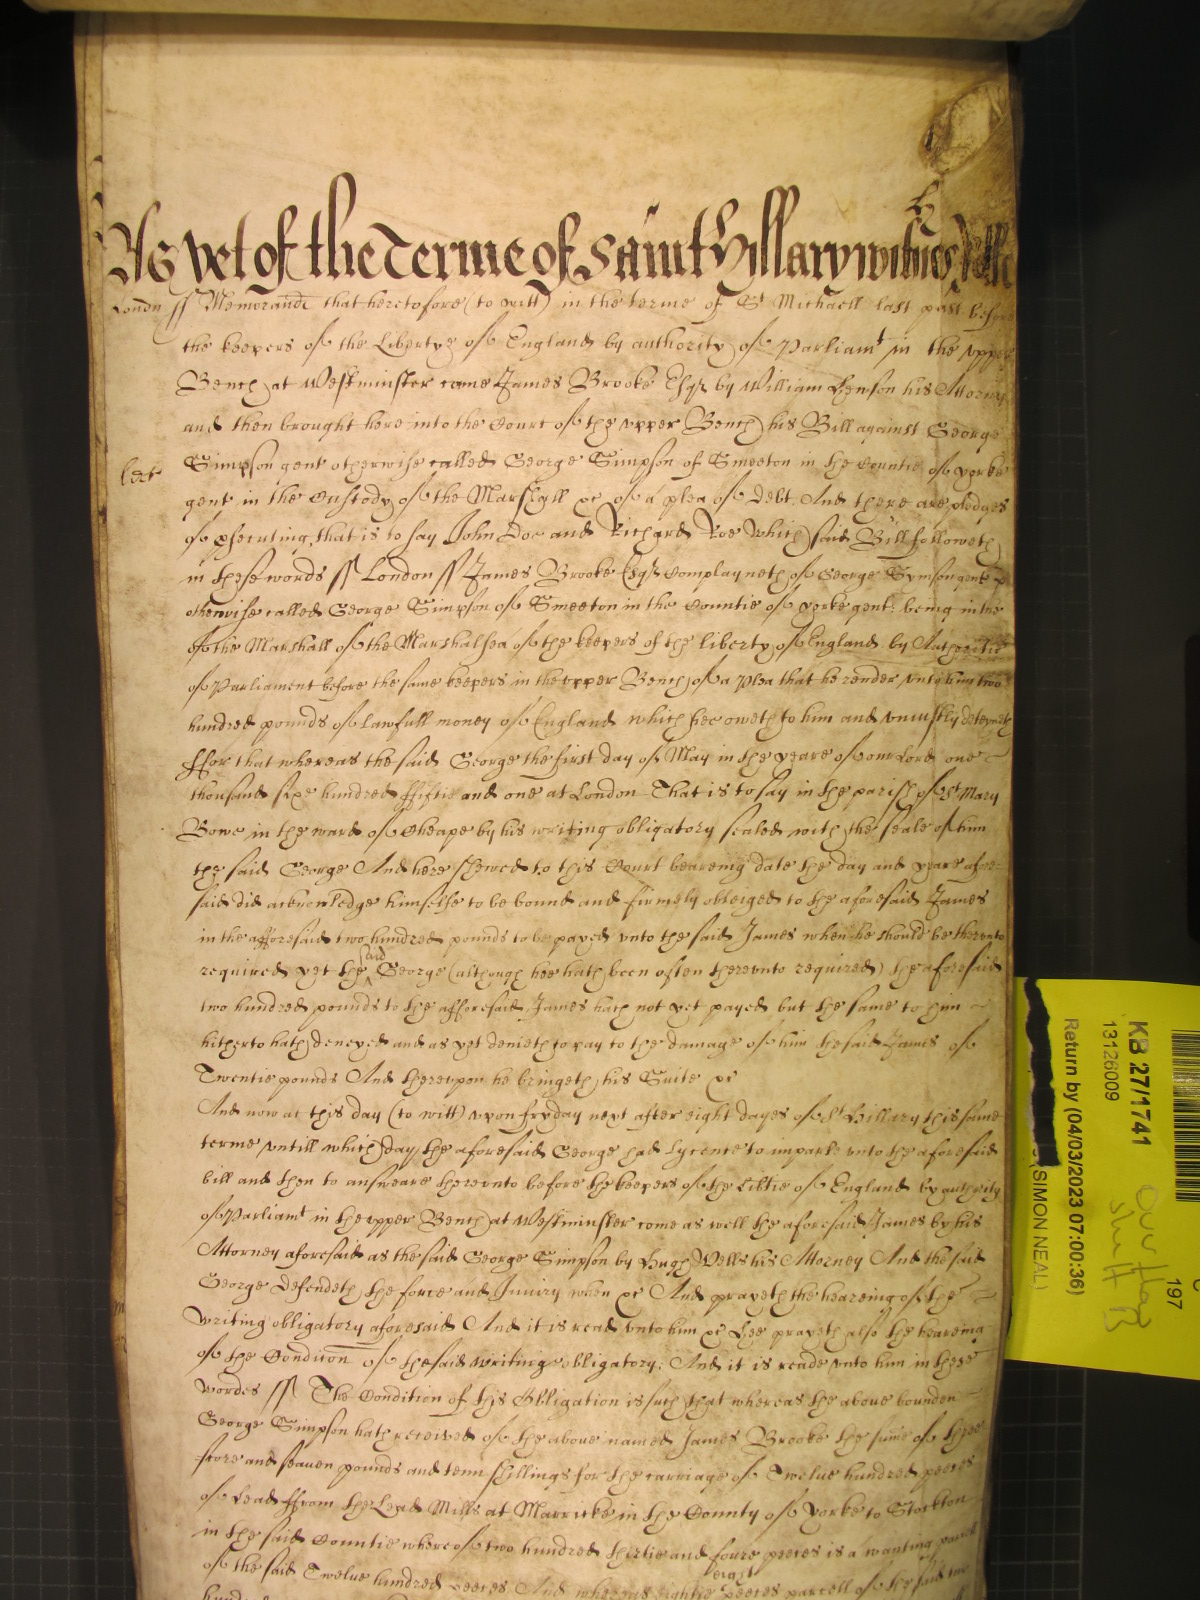 As yet of the Terme of Saint Hillary witnes
London ss Memorand that heretofore (to witt) in the terme of St Michaell last past before
the keepers of the Libertye of England by authority of Parliamt in the upper
Bench at Westminster came James Brooke Esqr by William Henson his Attorney
and then brought here into the Court of the upper Bench his Bill against George
Simpson gent otherwise called George Simpson of Smeeton in the Countie of yorke
gent in the Custody of the Marshall &c of a plea of debt And there are pledges
of psecuting, that is to say John Doe and Richard Roe which said Bill followeth
in these words ss London ss James Brooke Esqr Complayneth of George Symson gent
otherwise called George Simpson of Smeeton in the Countie of yorke gent: being in the
of the Marshall of the Marshalsea of the keepers of the liberty of England by Authoritie
of Parliament before the same keepers in the upper Bench of a Plea that he render unto him two
hundred pounds of lawfull money of England which hee oweth to him and uniustly deteyneth
ffor that whereas the said George the first day of May in the yeare of our Lord one
thousand sixe hundred ffiftie and one at London That is to say in the parish of St Mary
Bowe in the ward of Cheape by his writing obligatory sealed with the seale of him
the said George And here shewed to this Court beareing date the day and yeare afore-
said did acknowledge himselfe to be bound and firmely obleiged to the aforesaid James
in the afforesaid two hundred pounds to be payed unto the said James when he should be thereunto
required yet the said George (although hee hath been often thereunto required) the aforesaid
two hundred pounds to the afforesaid James hath not yet payed but the same to him
hitherto hath denyed and as yet denieth to pay to the damage of him the said James of
Twentie pounds And thereupon he bringeth his Suite &c
And now at this day (to witt) upon fryday next after eight dayes of St Hillary this same
terme untill which day the aforesaid George had lycence to imparle unto the aforesaid
bill and then to answeare thereunto before the keepers of the Libtie of England by authority
of Parliamt in the upper Bench at Westminster come as well the aforesaid James by his
Attorney aforesaid as the said George Simpson by Hugh Wells his Attorney And the said
George defendeth the force and Iniury when &c And prayeth the heareing of the
writing obligatory aforesaid And it is read unto him &c Hee prayeth also the heareing
of the Condicon of the said writing obligatory: And it is reade unto him in these
wordes ss The Condition of this Obligation is such that whereas the above bounden
George Simpson hath received of the above named James Brooke the sume of three
score and seaven pounds and tenn shillings for the carriage of Twelve hundred peeces
of Lead ffrom the Lead Mills at Marricke in the County of yorke to Stockton
in the said Countie whereof two hundred thirtie and foure peeces is a wanting parcell
of the said Twelve hundred peeces And whereas eightie eight peeces parcell of the said two
hundred
KB 27/1741
13126009
Return by (04/03/2023 07:00:36)
(SIMON NEAL)
197